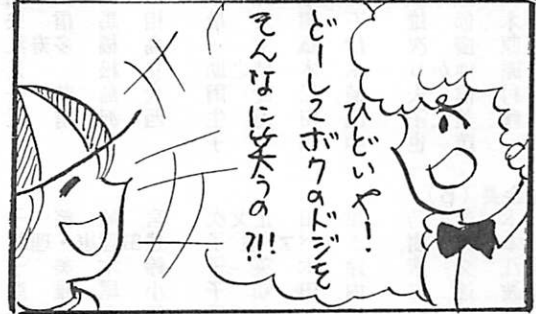 ひどいや!
どーしてボクのドジを
そんなに笑うの?!!